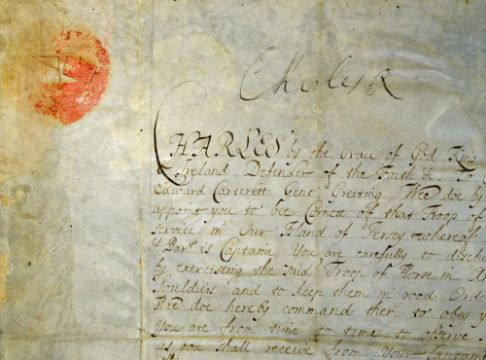 Charles R
CHARLES by the Grace of God King
Ireland, Defender of the Faith &c
Edward Carterett Gent Greeting. Wee doe by
appoint you to bee Cornett of that Troop of
service in Our Island of Jersey whereof
& Barᵗ is Captaine. You are carefully to discha
by exercising the said Troop of Horse in Ar
Souldiers and to keep them in good Ord
Wee doe hereby command them to obey y
You are from time to time to observe
as you shall receive from Your Captain